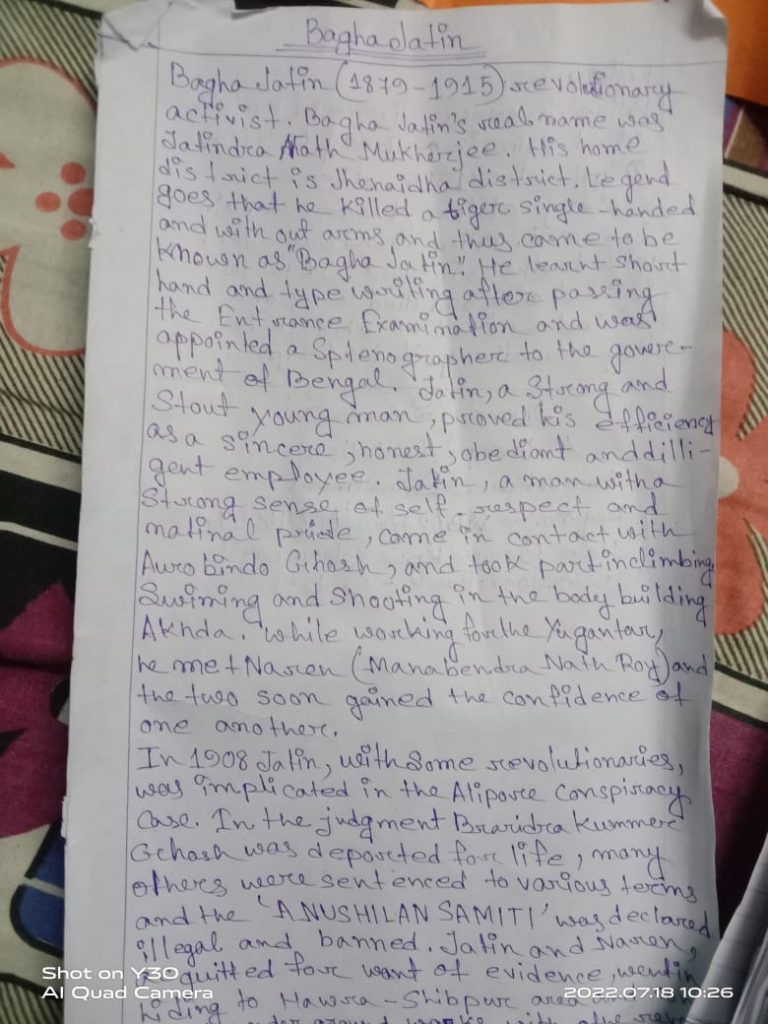 Bagha Jatin
Bagha Jatin (1879-1915) revolutionary
activist. Bagha Jatin's real name was
Jatindra Nath Mukherjee. His home
district is Jhenaidha district. Legend
goes that he killed a tiger single-handed
and with out arms and thus came to be
known as "Bagha Jatin". He learnt short
hand and type writing after passing
the Entrance Examination and was
appointed a Sptenographer to the gover-
ment of Bengal. Jatin, a Strong and
Stout young man, proved his efficiency
as a sincere, honest, obediant and dilli-
gent employee. Jatin, a man with a
Strong sense of self-respect and
natinal pride, came in contact with
Aurobindo Ghosh, and took part in climbing,
Swiming and Shooting in the body building
Akhda. While working for the Yugantar,
he met Naren (Manabendra Nath Roy) and
the two soon gained the confidence of
one another.
In 1908 Jatin, with Some revolutionaries,
was implicated in the Alipore Conspiracy
Case. In the judgment Braridra Kummer
Gchosh was deported for life, many
others were sentenced to various terms
and the 'ANUSHILAN SAMITI' was declared
illegal and banned. Jatin and Naren,
quitted for want of evidence, went in
hiding to Hawra-Shibpur area
Shot on Y30
AI Quad Camera
2022.07.18 10:26